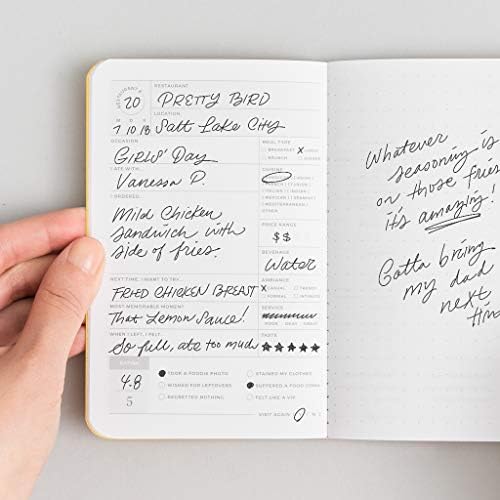 RESTAURANT #
20
RESTAURANT
PRETTY BIRD
LOCATION
M D Y
7 10 18 Salt Lake City
OCCASION
GIRLS' DAY
MEAL TYPE
BREAKFAST X LUNCH
BRUNCH DINNER
I ATE WITH...
Vanessa P.
CUISINE
I ORDERED...
Mild Chicken
Sandwich with
side of fries.
MEDITERRANEAN
OTHER
PRICE RANGE
$$
BEVERAGE
Water
NEXT TIME, I WANT TO TRY...
FRIED CHICKEN BREAST
AMBIANCE
X CASUAL TRENDY
FORMAL INTIMATE
MOST MEMORABLE MOMENT
That Lemon Sauce!
SERVICE
WHEN I LEFT, I FELT...
So full, ate too much
TASTE
★★★★★
RATING
4.8
5
TOOK A FOODIE PHOTO
WISHED FOR LEFTOVERS
REGRETTED NOTHING
STAINED MY CLOTHES
SUFFERED A FOOD COMA
FELT LIKE A VIP
VISIT AGAIN Y N
Whatever
seasoning is
on those fries
it's amazing!
Gotta bring
my dad
next
time